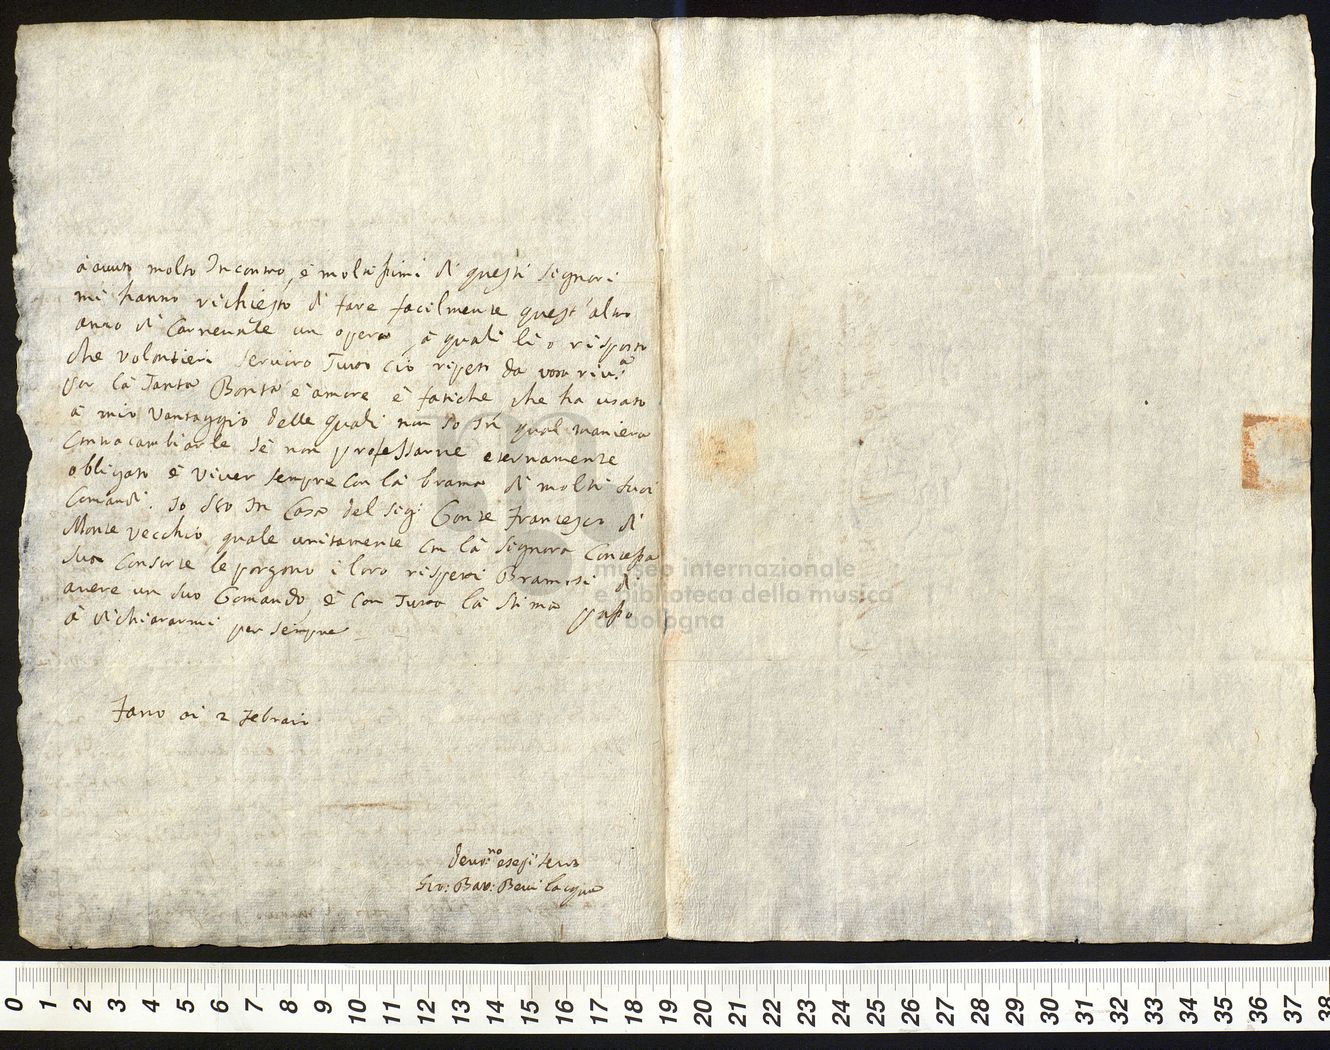 à auuto molto Incontro, è moltissimi di questi Signori
mi hanno richiesto di fare facilmente quest'altro
anno di Carneuale un opera, à quali li ò risposto
che volontieri seruirò Tutto ciò ripeto da vosa riu.a
per là Tanta Bontà è amore è fatiche che ha usato
à mio Vantaggio delle quali non sò in qual maniera
contracambiarle sè non professarne eternamente
obligato è viuer sempre con là brama di molti suoi
Comandi. Io stò In Casa del Sig: Conte Francesco di
Monte Vecchio, quale unitamente con là Signora Contessa
sua Consorte le porgono i loro rispetti Bramosi di
auere un suo Comando, è con Tutta là stima passo
à dichiararmi per sempre
Fano ai 2 Febraii
Deuo:mo
Gio: Bat: Beuilacqua
museo internazionale
e biblioteca della musica
di bologna
0 1 2 3 4 5 6 7 8 9 10 11 12 13 14 15 16 17 18 19 20 21 22 23 24 25 26 27 28 29 30 31 32 33 34 35 36 37 38